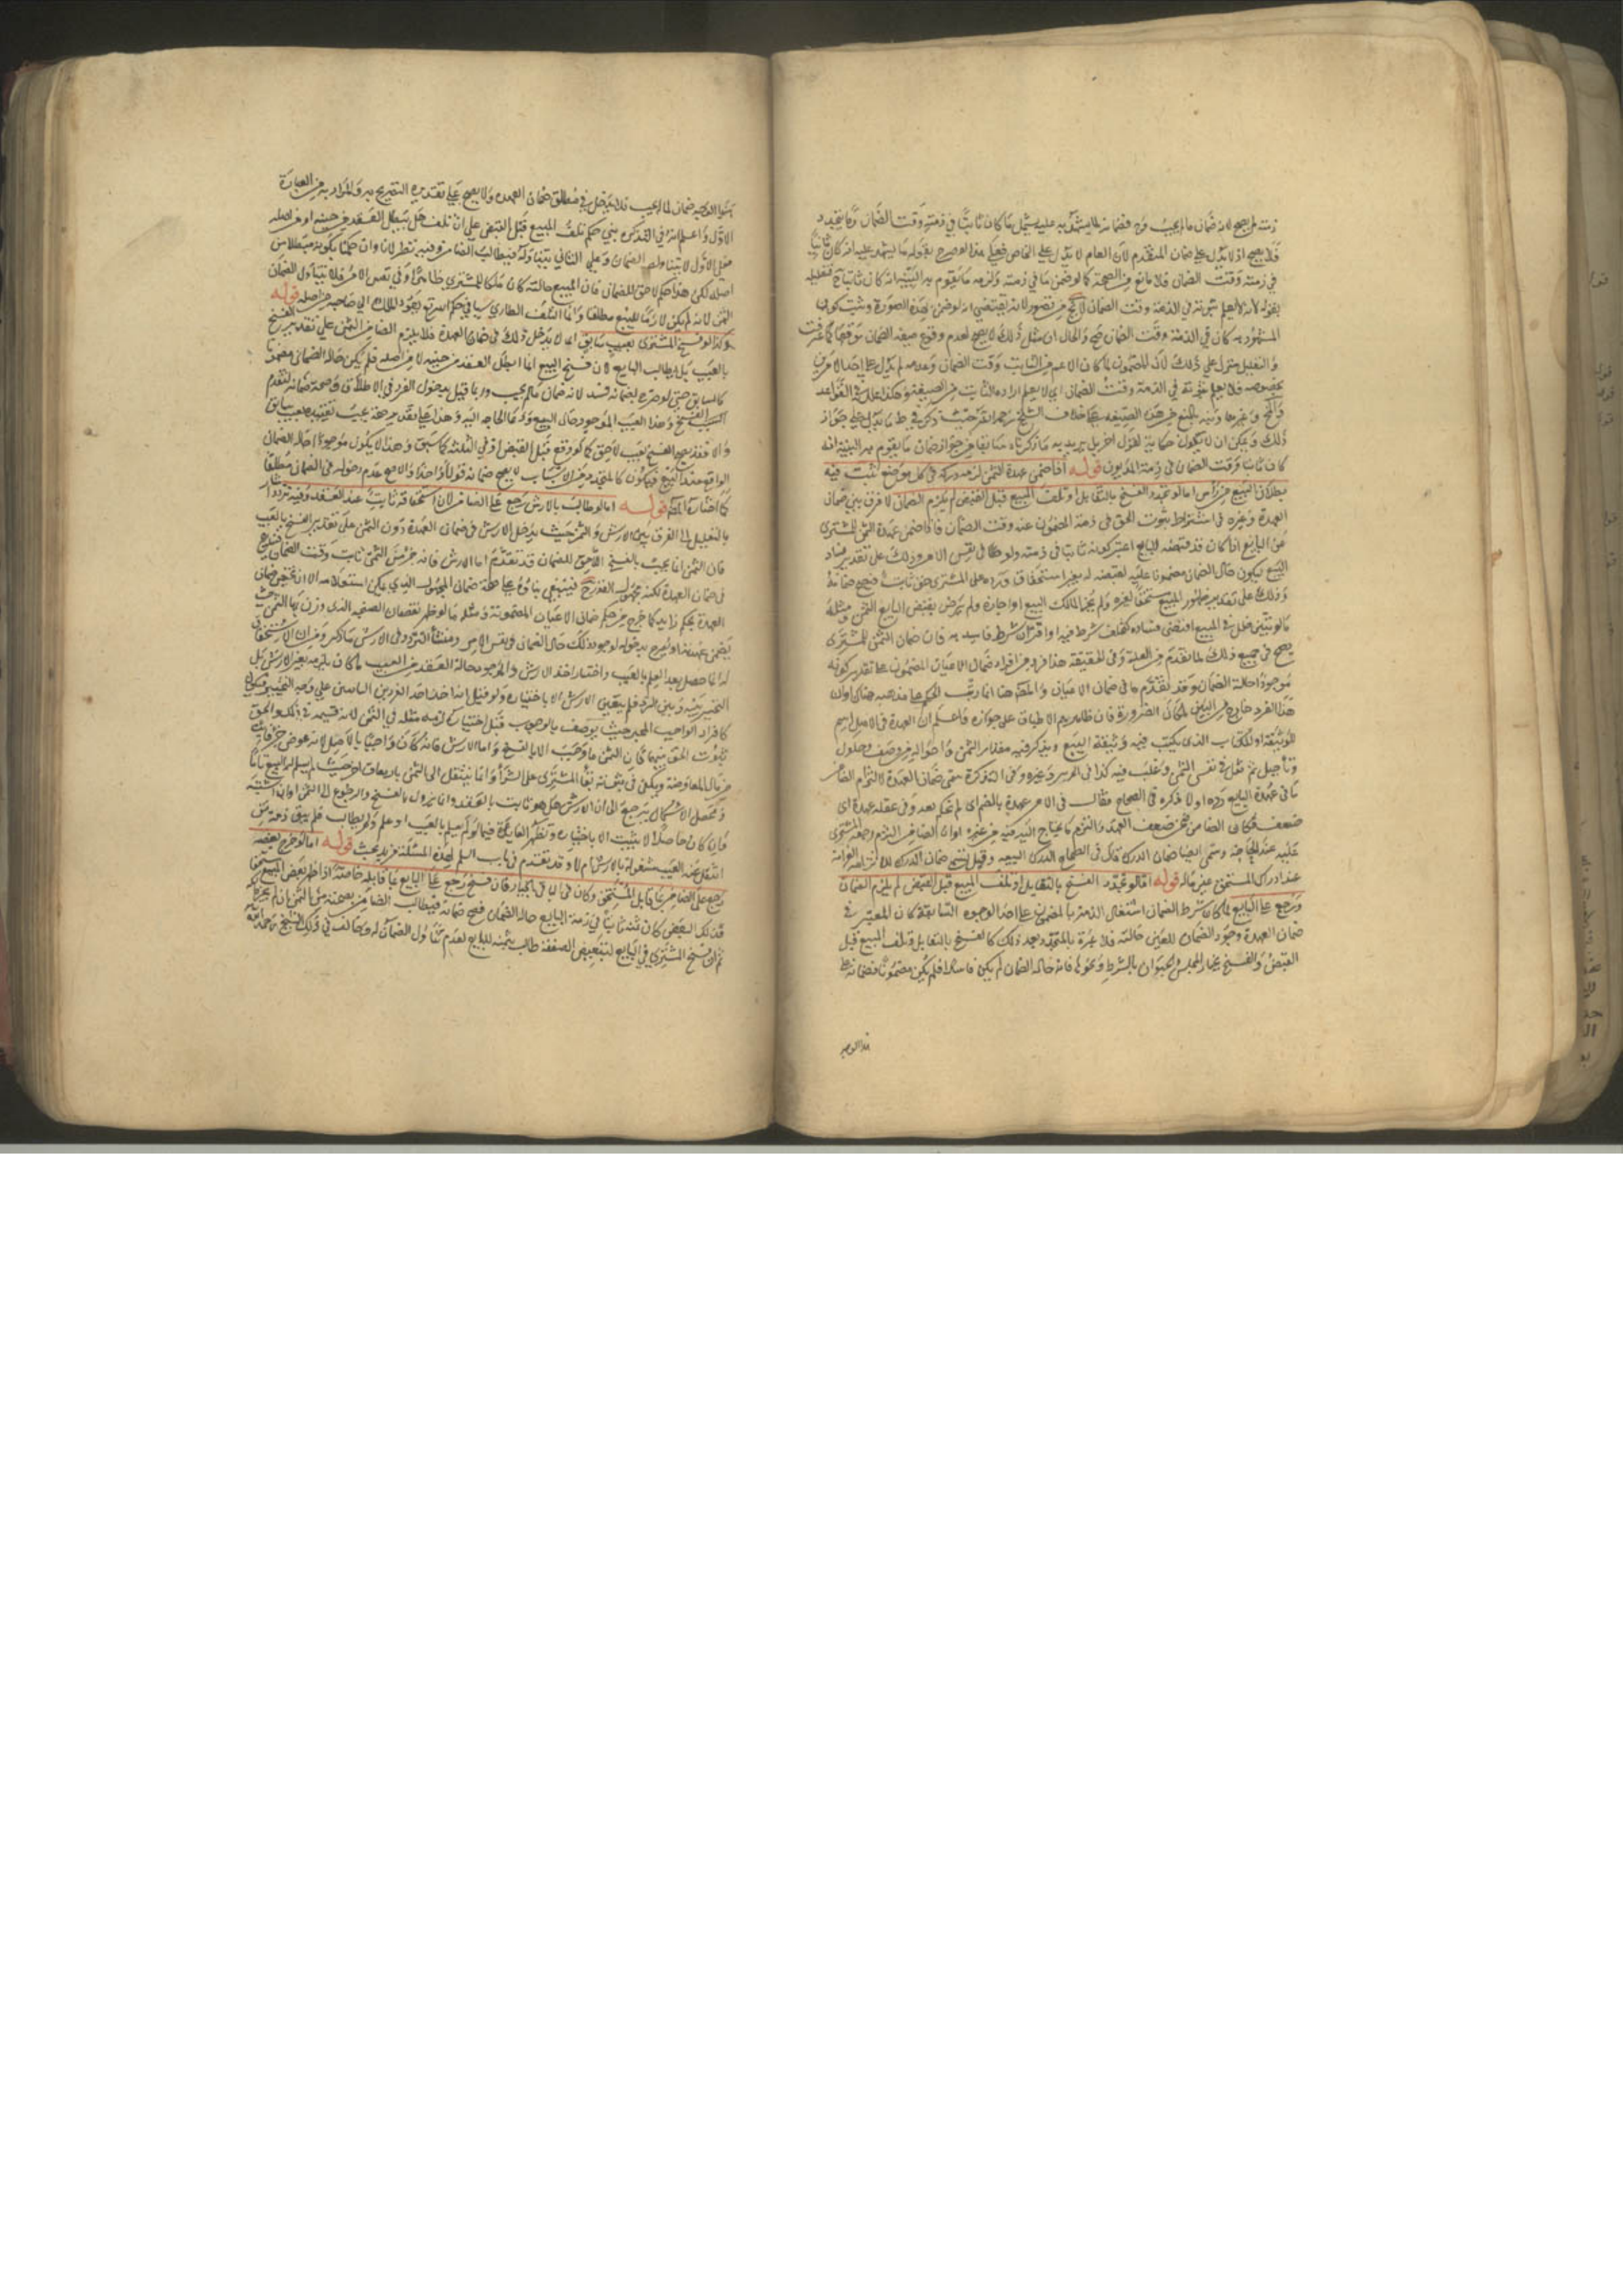 ذمته لم يصح لانه ضمان ما لم يجب وح فضمانه لما يشهد به عليه يشمل ما كان ثابتا في ذمته وقت الضمان وما يتجدد
فلا يصح اذ لا يدل على ضمان المتقدم لان العام لا يدل على الخاص فعلى هذا لو صرح بقوله ما يشهد عليه انه كان ثابتا
في ذمته وقت الضمان فلا مانع من الصحة كما لو ضمن ما في ذمته ولزمه ما يقوم به البينة انه كان ثابتا فتعليله
بقوله لانه لا يعلم ثبوته في الذمة وقت الضمان لا يخ من قصور لانه يقتضي انه لو ضمن بهذه الصورة وثبت كون
المشهود به كان في الذمة وقت الضمان صح والحال ان مثل ذلك لا يصح لعدم وقوع صيغة الضمان موقعها كما عرفت
والتعليل منزل على ذلك لان المضمون لما كان الاعم من الثابت وقت الضمان وعدمه لم يدل على احد الامرين
بخصوصه فلا يعلم ثبوته في الذمة وقت الضمان اي لا يعلم ارادة الثابت من الصيغة وهكذا علله في القواعد
ذلك ويمكن ان لا يكون حكاية لقول اخر بل يريد به ما ذكرناه سابقا من جواز ضمان ما يقوم به البينة انه
كان ثابتا وقت الضمان في ذمة المديون قوله اذا ضمن عهدة الثمن لزمه دركه في كل موضع يثبت فيه
بطلان البيع من رأس اما لو تجدد الفسخ بالتقايل او تلف المبيع قبل القبض لم يلزم الضامن لا فرق بين ضمان
العهدة وغيره في اشتراط ثبوت الحق في ذمة المضمون عنه وقت الضمان فاذا ضمن عهدة الثمن للمشتري
عن البايع اذا كان قد قبضه البايع اعتبر كونه ثابتا في ذمته ولو ظاهرا في نفس الامر وذلك على تقدير فساد
البيع ليكون حال الضمان مضمونا عليه لقبضه له بغير استحقاق ورده على المشتري حق ثابت فيصح ضمانه
وذلك على تقدير ظهور المبيع مستحقا لغيره ولم يجز المالك البيع او اجازه ولم يرض بقبض البايع الثمن ومثله
ما لو تبين خلل في المبيع اقتضى فساده كتخلف شرط فيه او اقتران شرط فاسد به فان ضمان الثمن للمشتري
يصح في جميع ذلك لما تقدم من العلة وفي الحقيقة هذا فرد من افراد ضمان الاعيان المضمونة على تقدير كونه
موجودا حالة الضمان وقد تقدم ما في ضمان الاعيان والمصنف هنا انما رتب الحكم على مذهبه هناك او ان
هذا الفرد خارج من البين لمكان الضرورة فان ظاهرهم الاطباق على جوازه واعلم ان العهدة في الاصل اسم
للوثيقة او للكتاب الذي يكتب فيه وثيقة البيع ويذكر فيه مقدار الثمن واحواله من وصف وحلول
وتأجيل ثم نقل الى نفس الثمن وغلب فيه كذا في التحرير وغيره وفي التذكرة سمي ضمان العهدة لالتزام الضامن
ما في عهدة البايع رده او لما ذكره في الصحاح فقال في الامر عهدة بالضم اي لم يحكم بعد وفي عقله عهدة اي
ضعف فكان الضامن ضمن ضعف العقد والتزم ما يحتاج اليه فيه من غرم او ان الضامن التزم رجعة المشتري
عليه عند الحاجة وسمي ايضا ضمان الدرك قال في الصحاح الدرك التبعة وقيل سمي ضمان الدرك لالتزامه الغرامة
عند ادراك المستحق عين ماله قوله اما لو تجدد الفسخ بالتقايل او تلف المبيع قبل القبض لم يلزم الضامن
ورجع على البايع لما كان شرط الضمان اشتغال الذمة بالمضمون على احد الوجوه السابقة كان المعتبر في
ضمان العهدة وجود الضمان للعين حالته فلا عبرة بالمتجدد بعد ذلك كالفسخ بالتقايل وتلف المبيع قبل
القبض والفسخ بخيار المجلس والحيوان بالشرط ونحوها فانه حالة الضمان لم يكن فاسدا فلم يكن مضمونا فضمانه على
هذا الوجه
هذا الوجه ضمان لما لم يجب فلا يدخل في مطلق ضمان العهدة ولا يصح على تقدير التصريح به والمراد به من العبارة
الاول واعلم انه في التذكرة بنى حكم تلف المبيع قبل القبض على ان التلف هل يبطل العقد من حينه او من اصله
فعلى الاول لا يتناوله الضمان وعلى الثاني يتناوله فيطالب الضامن وفيه نظر لانا وان حكمنا بكونه مبطلا من
اصله لكن هذا حكم لاحق للضمان فان المبيع حالته كان ملكا للمشتري ظاهرا وفي نفس الامر فلا يتناول الضمان
الثمن لانه لم يكن لازما للبيع مطلقا وانما التلف الطاري سبب في حكم الله بعود الملك الى صاحبه من اصله قوله
وكذا لو فسخ المشتري بعيب سابق اي لا يدخل ذلك في ضمان العهدة فلا يلزم الضامن الثمن على تقدير الفسخ
بالعيب بل يطالب البايع لان فسخ البيع انما ابطل العقد من حينه لا من اصله فلم يكن حالة الضمان مضمونا
كالسابق حتى لو صرح بضمانه فسد لانه ضمان ما لم يجب وربما قيل بدخول الفرد في الاطلاق وصحة ضمانه لتقدم
سبب الفسخ وهذا العيب الموجود حال البيع ولدعاء الحاجة اليه وهذا
والا فقد يصح الفسخ بعيب لاحق كما لو وقع قبل القبض او في الثلثة كما سبق وهذا لا يكون موجودا حالة الضمان
الواقع عند البيع فيكون كالمتجدد من الاسباب لا يصح ضمانه قولا واحدا والاصح عدم دخوله في الضمان مطلقا
كما اختاره المصنف قوله اما لو طالب بالارش رجع على الضامن لان استحقاقه ثابت عند العقد وفيه تردد اشار
بالتعليل الى الفرق بين الارش والثمن حيث يدخل الارش في ضمان العهدة دون الثمن على تقدير الفسخ بالعيب
فان الثمن انما يجب بالفسخ اللاحق للضمان كما قد تقدم اما الارش فانه جزء من الثمن ثابت وقت الضمان فيندرج
في ضمان العهدة لكنه مجهول القدر ح فينبغي بناؤه على صحة ضمان المجهول الذي يمكن استعلامه
العهدة بحكم زايد كما خرج من حكم ضمان الاعيان المضمونة ومثله ما لو ظهر نقصان الصنجة الذي وزن بها الثمن حيث
يضمن عهدته او يصرح بدخوله لوجود ذلك حال الضمان في نفس الامر ومنشأ التردد في الارش ما ذكر ومن ان الاستحقاق
له انما حصل بعد العلم بالعيب واختيار اخذ الارش والموجود حالة العقد من العيب ما كان يلزمه تعين الارش بل
التخيير بينه وبين الرد فلم يتعين الارش الا باختياره ولو قيل انه احد الفردين الثابتين على وجه التخيير فيكون
كافراد الواجب المخير حيث يوصف بالوجوب قبل اختياره لزمه مثله في الثمن لانه قسيمه في ذلك والحق
ثبوت الفرق بينهما فان الثمن ما وجب الا بالفسخ واما الارش فانه كان واجبا بالاصل لانه عوض جزء فايت
من مال المعاوضة ويكفي في ثبوته بقاء المشتري على الشراء وانما ينتقل الى الثمن بارتفاع اخر حيث لم يسلم له المبيع تاما
ومحصل الاشكال يرجع الى ان الارش هل هو ثابت بالعقد وانما يزول بالفسخ والرجوع الى الثمن او ان سببه
وان كان حاصلا لا يثبت الا باختياره وتظهر الفايدة فيما لو لم يعلم بالعيب او علم ولم يطالب فهل تبقى ذمة من
انتقل عنه المعيب مشغولة بالارش ام لا وقد تقدم في باب السلم لهذه المسئلة مزيد بحث قوله اما لو خرج بعضه
رجع على الضامن بما قابل المستحق وكان في الباقي بالخيار فان فسخ رجع على البايع بما قابله خاصة اذا ظهر بعض المبيع مستحقا
فذلك البعض كان ثمنه ثابتا في ذمة البايع حالة الضمان فصح ضمانه فيطالب الضامن بحصته من الثمن
ثم ان فسخ المشتري في الباقي لتبعض الصفقة طالب بثمنه للبايع لعدم تناول الضمان له وخالف في ذلك الشيخ